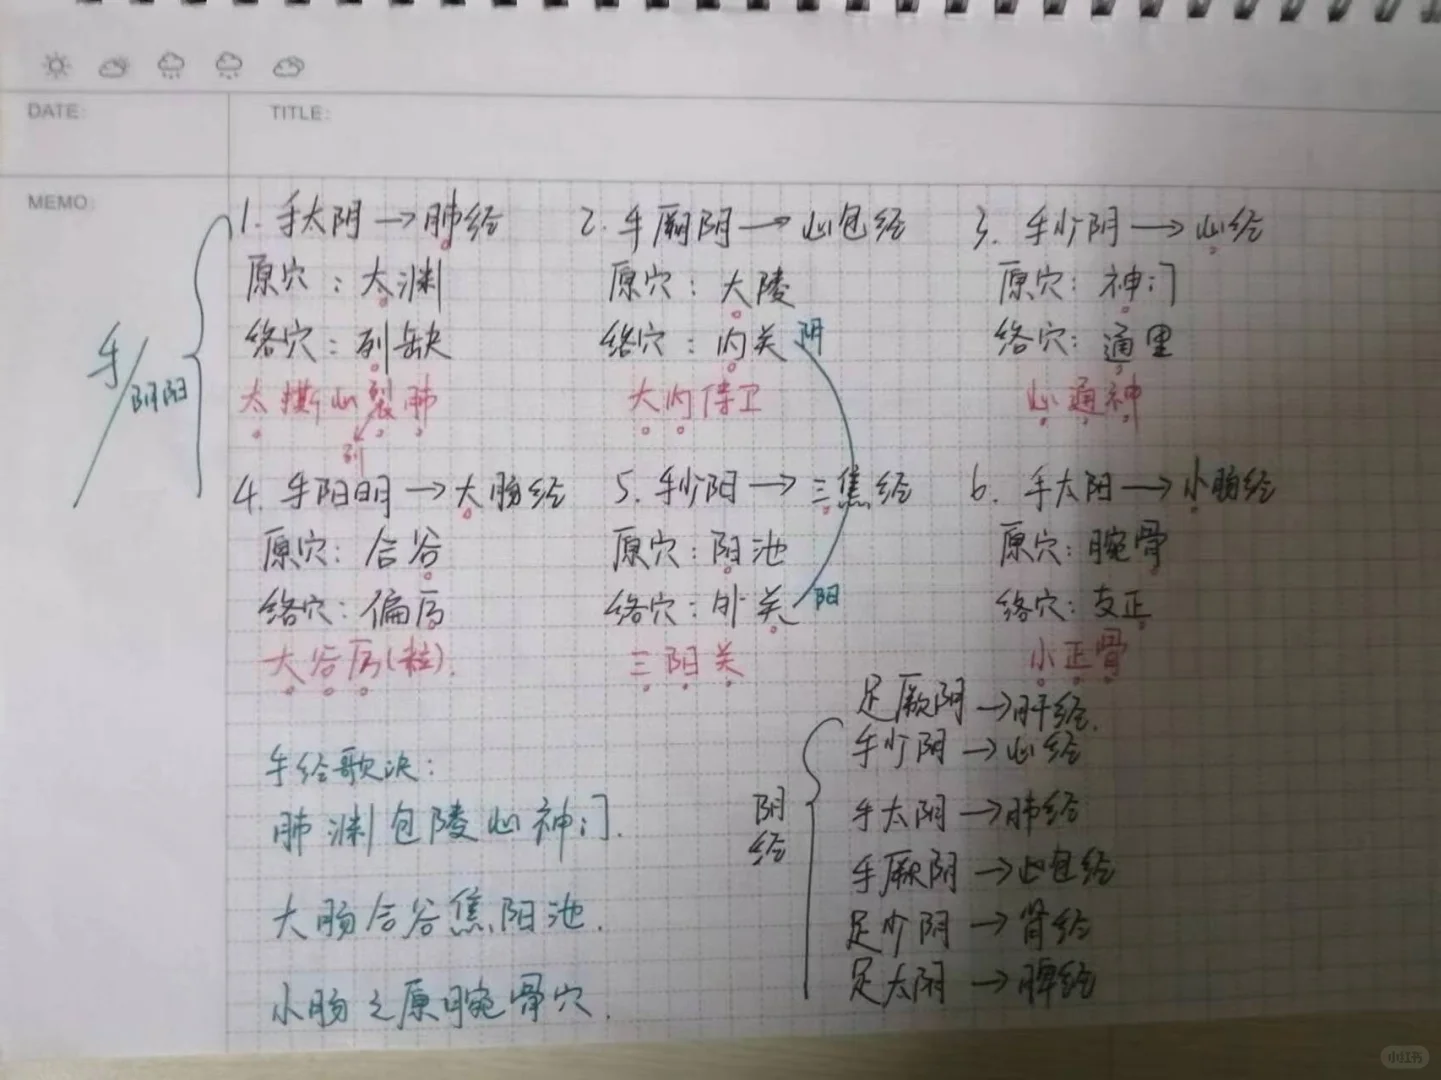 DATE:
TITLE:
MEMO:
手/阴阳
1. 手太阴→肺经
原穴：太渊
络穴：列缺
太撕心裂肺
列
2. 手厥阴→心包经
原穴：大陵
络穴：内关 阴
大内侍卫
3. 手少阴→心经
原穴：神门
络穴：通里
心通神
4. 手阳明→大肠经
原穴：合谷
络穴：偏历
大谷历(粒).
5. 手少阳→三焦经
原穴：阳池
络穴：外关 阳
三阳关
6. 手太阳→小肠经
原穴：腕骨
络穴：支正
小正骨
手经歌决：
肺渊包陵心神门.
大肠合谷焦阳池.
小肠之原腕骨穴.
阴经
足厥阴→肝经.
手少阴→心经
手太阴→肺经
手厥阴→心包经
足少阴→肾经
足太阴→脾经
小红书